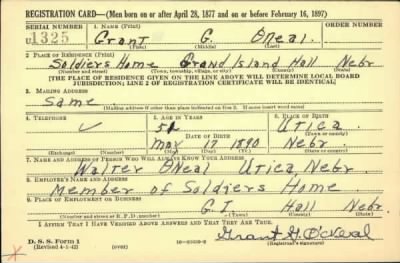 REGISTRATION CARD—(Men born on or after April 28, 1877 and on or before February 16, 1897)
SERIAL NUMBER 1. NAME (Print) ORDER NUMBER
U 1325 Grant G. O'Neal
(First) (Middle) (Last)
2. PLACE OF RESIDENCE (Print)
Soldiers Home Grand Island Hall Nebr
(Number and street) (Town, township, village, or city) (County) (State)
[THE PLACE OF RESIDENCE GIVEN ON THE LINE ABOVE WILL DETERMINE LOCAL BOARD
JURISDICTION; LINE 2 OF REGISTRATION CERTIFICATE WILL BE IDENTICAL]
3. MAILING ADDRESS
Same
[Mailing address if other than place indicated on line 2. If same insert word same]
4. TELEPHONE 5. AGE IN YEARS 6. PLACE OF BIRTH
✓ 51 Utica
DATE OF BIRTH (Town or county)
May 17 1890 Nebr.
(Exchange) (Number) (Mo.) (Day) (Yr.) (State or country)
7. NAME AND ADDRESS OF PERSON WHO WILL ALWAYS KNOW YOUR ADDRESS
Walter O'Neal Utica, Nebr.
8. EMPLOYER'S NAME AND ADDRESS
Member of Soldiers Home
9. PLACE OF EMPLOYMENT OR BUSINESS
G.I. Hall Nebr.
(Number and street or R. F. D. number) (Town) (County) (State)
I AFFIRM THAT I HAVE VERIFIED ABOVE ANSWERS AND THAT THEY ARE TRUE.
D. S. S. Form 1
(Revised 4-1-42) (over) Grant G. O'Neal
(Registrant's signature)